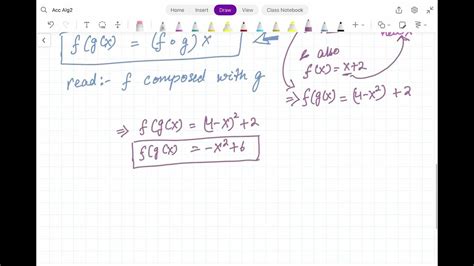 Acc Alg2
Home Insert Draw View Class Notebook
f(g(x) = (f∘g)x
read:- f composed with g
& also
f(x) = x+2
⇒ f(g(x) = (4-x²) + 2
⇒ f(g(x) = (4-x)²+2
f(g(x) = -x²+6